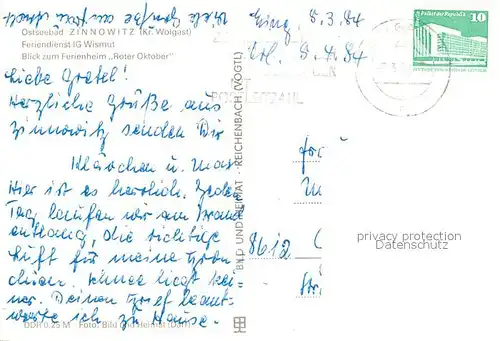 Viele Grüße an
Ostseebad ZINNOWITZ (Kr. Wolgast)
Feriendienst IG Wismut
Blick zum Ferienheim „Roter Oktober“
Liebe Gretel!
Herzliche Grüße aus
Zinnowitz senden Dir
Klärchen u. Max
Hier ist es herrlich. Jeden
Tag laufen wir am Strand
entlang, die richtige
Luft für meine Bron
chien. Schnee liegt kei-
ner. Deinen Brief beant-
worte ich zu Hause.
DDR 0,25 M Foto: Bild und Heimat (Dörr)
BILD UND HEIMAT · REICHENBACH (VOGTL)
Eing. 8.3.84
Erl. 9.4.84
10
8612
privacy protection
Datenschutz